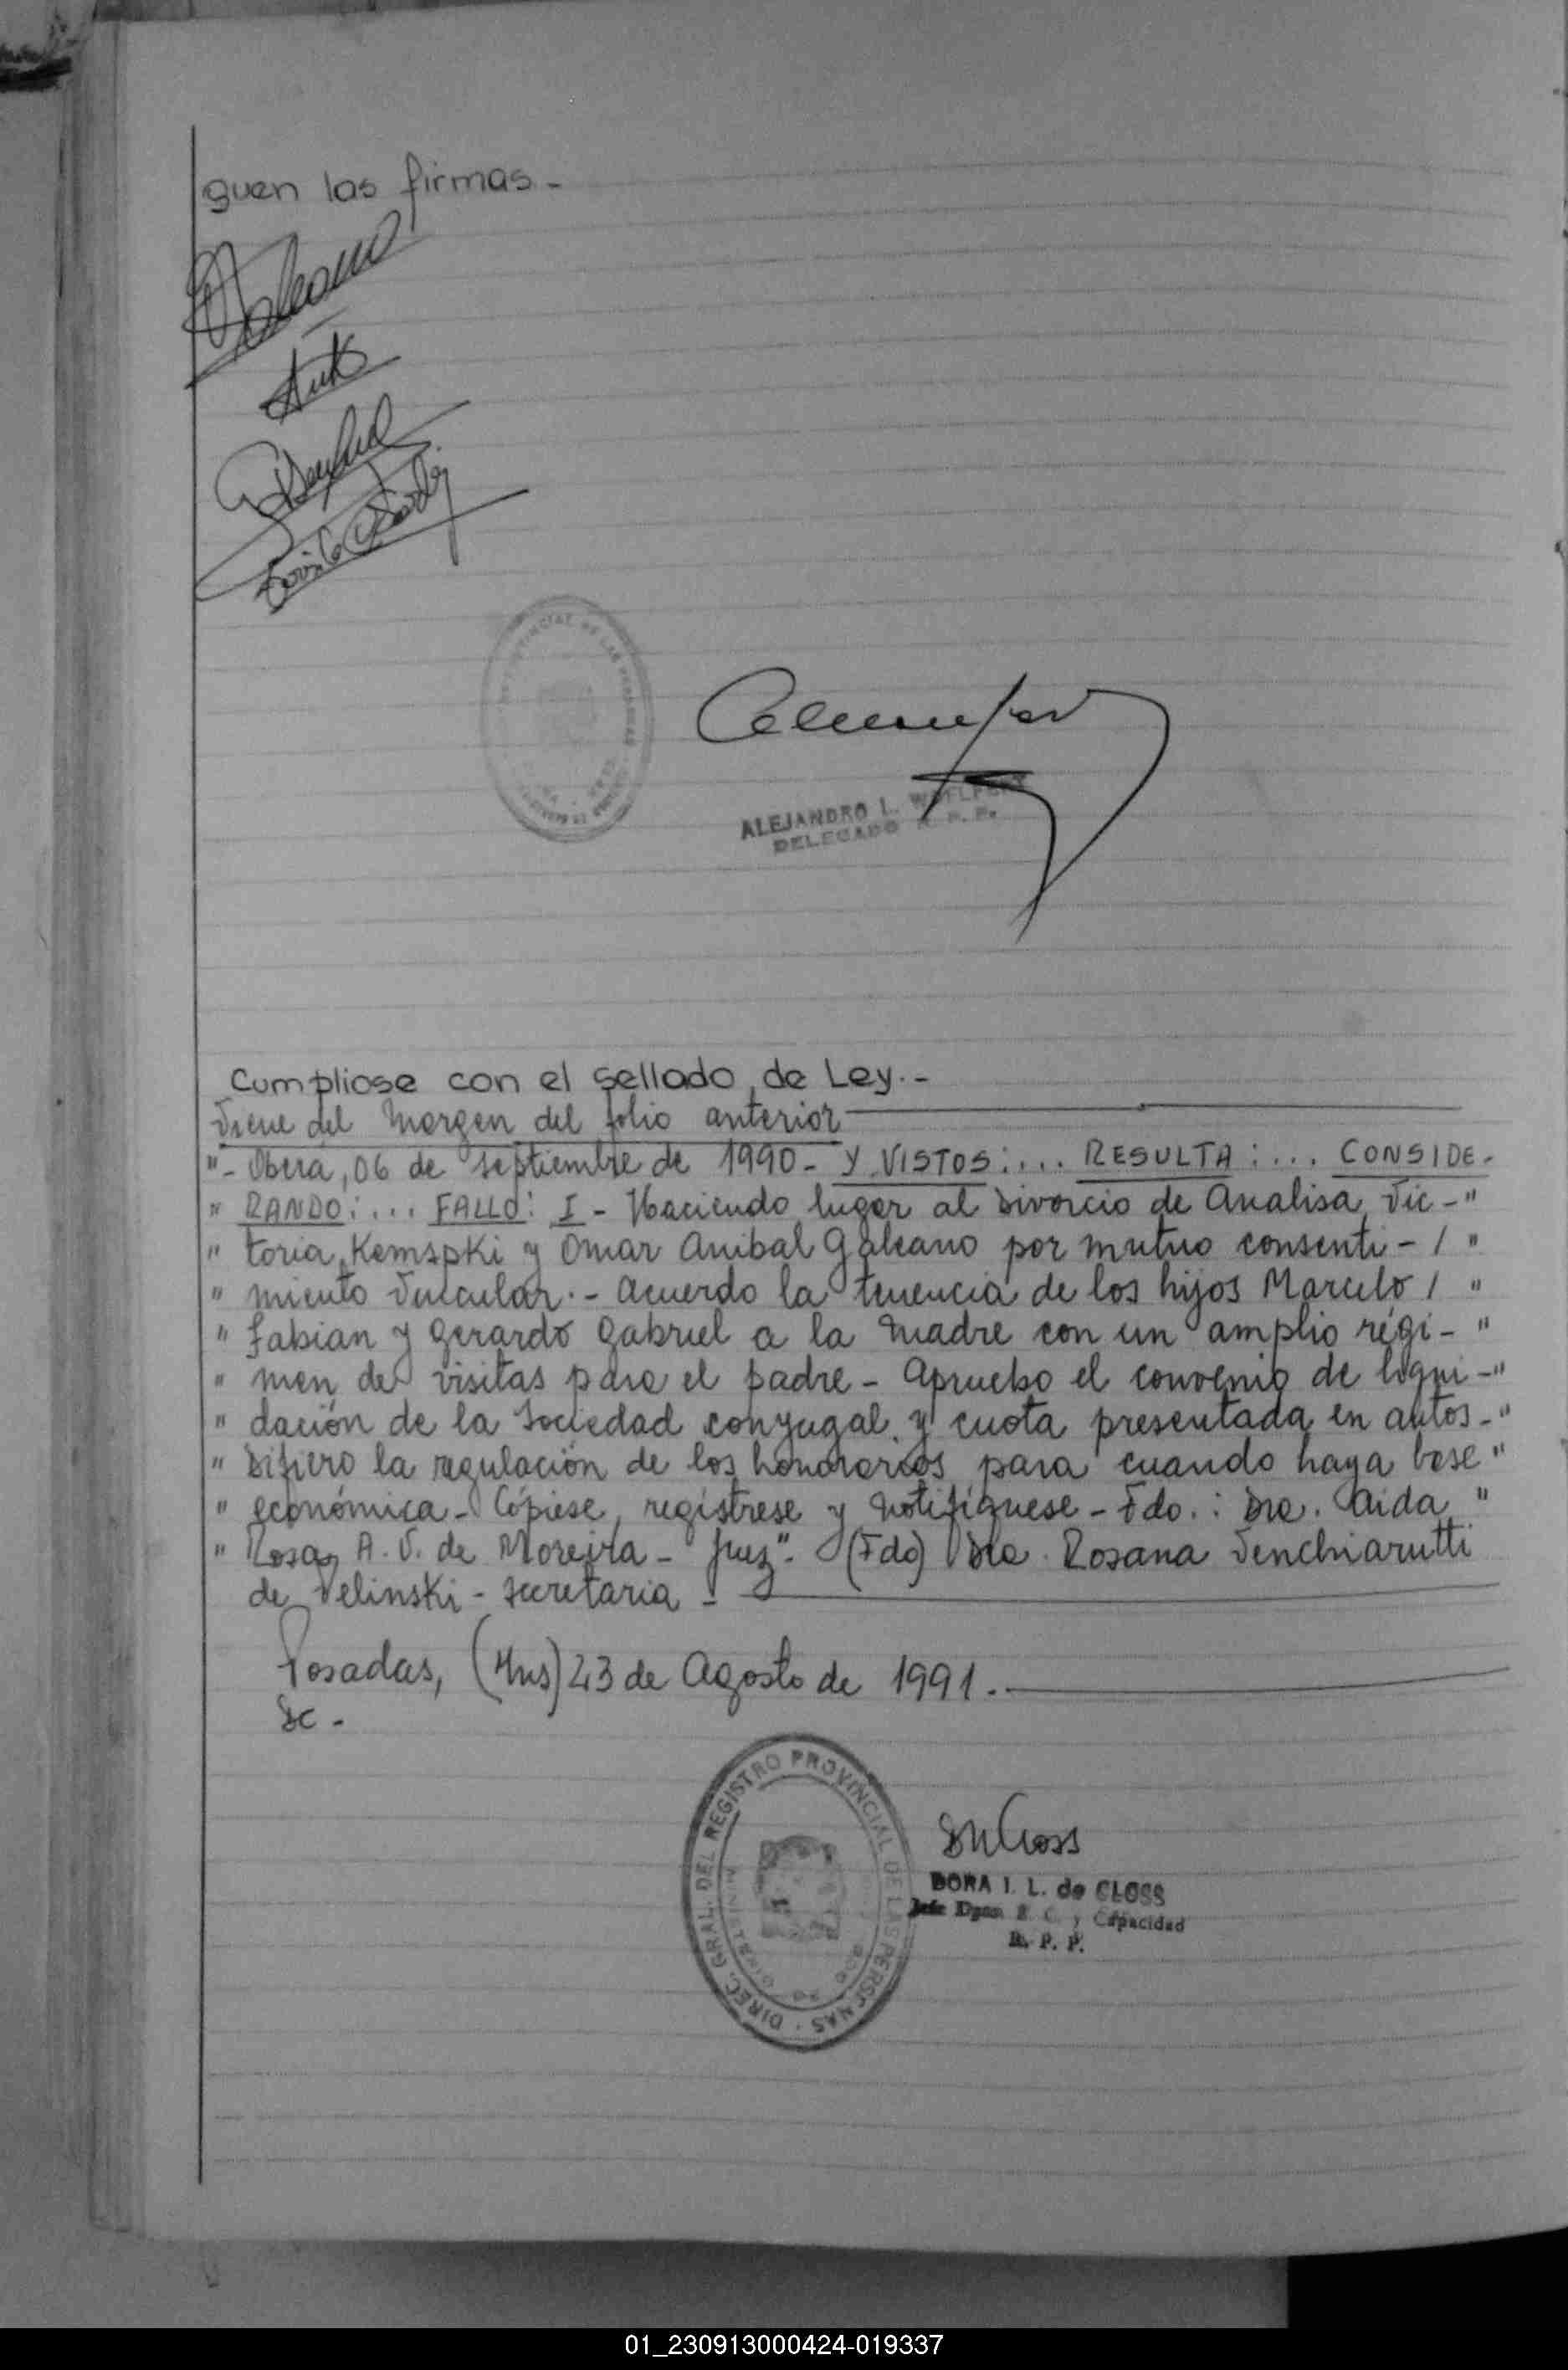 guen las firmas.-
ALEJANDRO L. WOLFERT
DELEGADO R. P. P.
Cumpliose con el sellado de Ley.-
Viene del Margen del folio anterior
"- Oberá, 06 de septiembre de 1990.- Y VISTOS:... RESULTA:... CONSIDE-
" RANDO:... FALLO: I - Haciendo lugar al Divorcio de Analisa Vic-"
" toria Kemspki y Omar Anibal Galeano por mutuo consenti- / "
" miento Vincular.- Acuerdo la tenencia de los hijos Marcelo / "
" Fabian y Gerardo Gabriel a la Madre con un amplio régi- "
" men de visitas para el padre - Apruebo el convenio de liqui-"
" dación de la Sociedad conyugal y cuota presentada en autos-"
" Difiero la regulación de los honorarios para cuando haya base "
" económica - Cópiese, regístrese y Notifíquese - Fdo.: Dra. Aida "
" Rosa A. V. de Moreira - Juez". (Fdo) Dra. Rosana Venchiarutti
de Velinski - Secretaria -
Posadas, (Mns) 23 de Agosto de 1991.-
Sc -
DIREC. GRAL. DEL REGISTRO PROVINCIAL DE LAS PERSONAS
DORA I. L. de CLOSS
Jefe Dpto. E. C. y Capacidad
R. P. P.
01_230913000424-019337